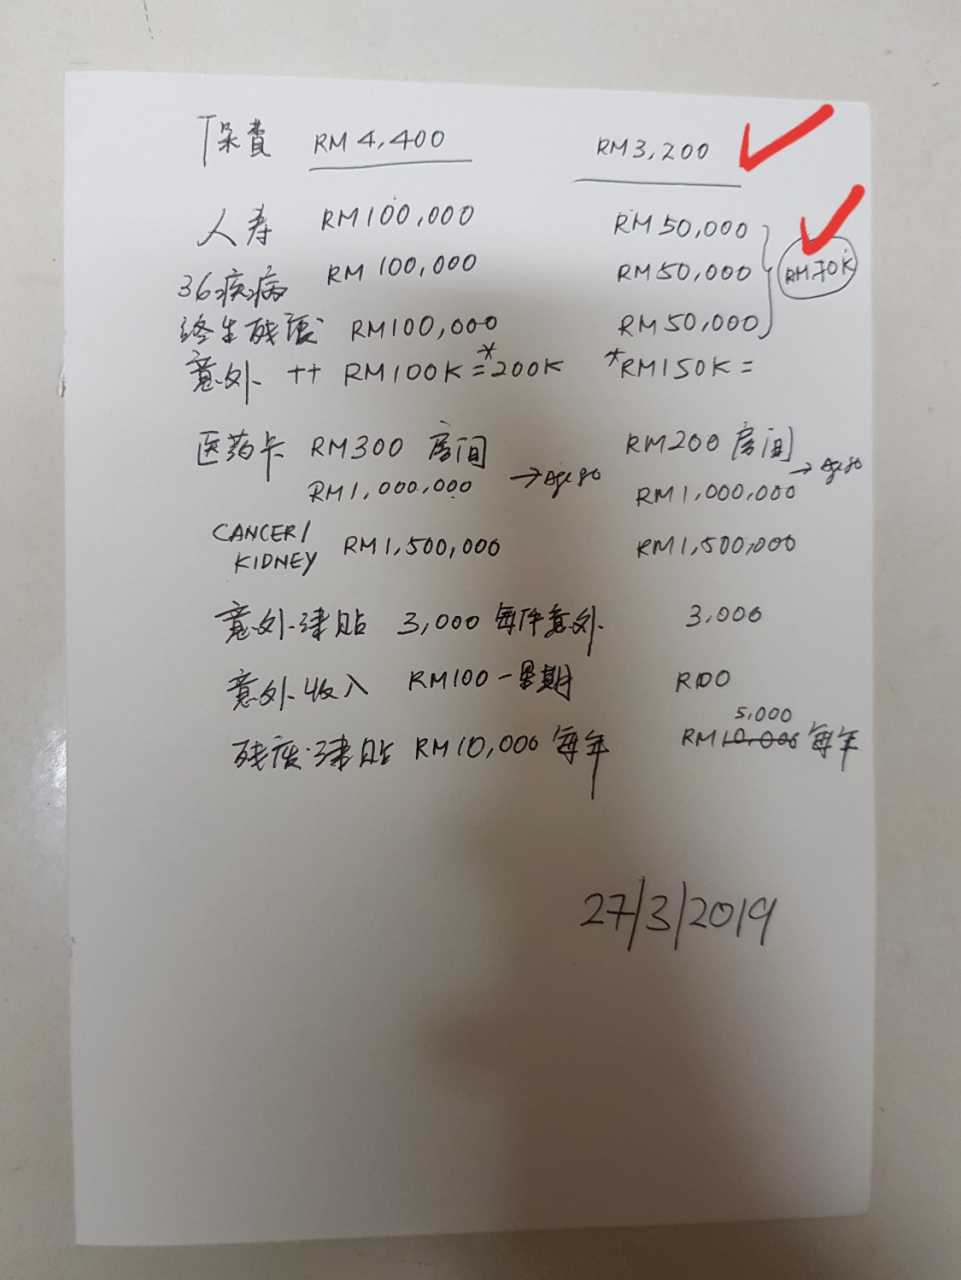 保费 RM 4,400 RM3,200
人寿 RM100,000 RM 50,000
RM70K
36疾病 RM 100,000 RM 50,000
终生残废 RM100,000 RM 50,000
意外 ++ RM100K = *200K *RM150K =
医药卡 RM300 房间 RM200 房间
RM1,000,000 → Age 80 RM1,000,000 → Age 80
CANCER/
KIDNEY RM1,500,000 RM1,500,000
意外津贴 3,000 每件意外 3,000
意外收入 RM100 一星期 R100
5,000
残废津贴 RM10,000 每年 RM10,000 每年
27/3/2019